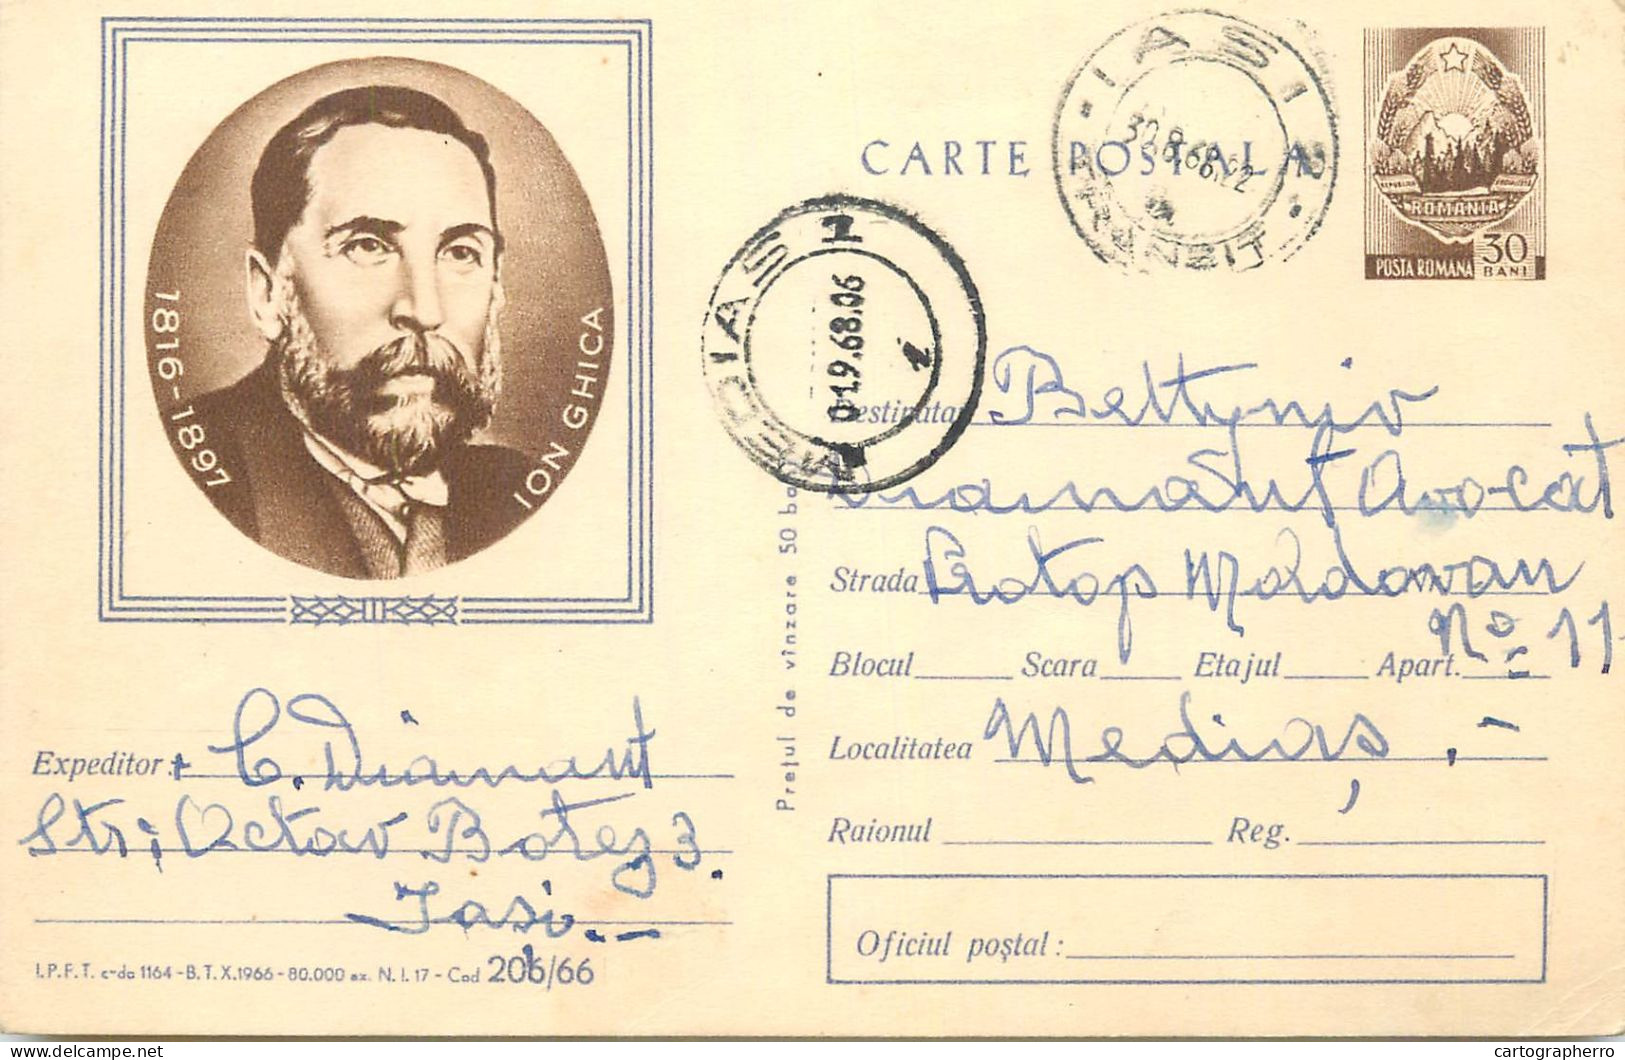 1816-1897
ION GHICA
CARTE POSTALA
IASI 2
30.8.68.22
TRANZIT
REPUBLICA SOCIALISTA
ROMANIA
POSTA ROMANA 30 BANI
MEDIAS 1
01.9.68.06
Destinatar Bettyniv
Diamant Avocat
Strada Protop Moldovan
No 11
Blocul Scara Etajul Apart.
Localitatea Mediaș.-
Raionul Reg.
Oficiul poștal:
Prețul de vînzare 50 ba
Expeditor: C. Diamant
Str: Octav Botez 3.
Iasi.-
I.P.F.T. c-da 1164 - B.T.X.1966 - 80.000 ex. N.I. 17 - Cod 206/66
delcampe.net
cartographerro